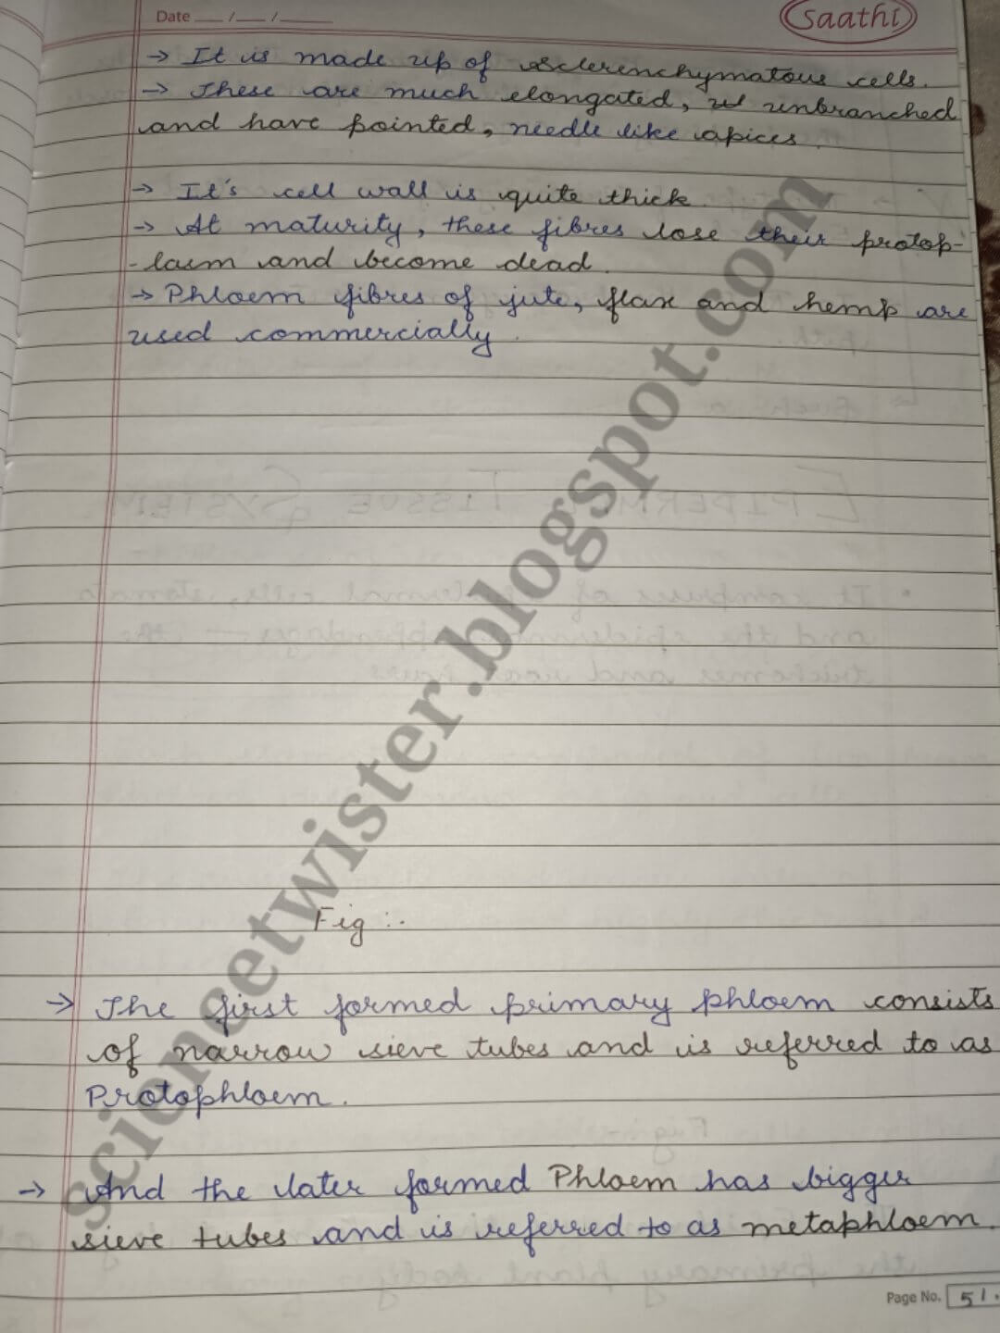 Date __/__/____
saathi
→ It is made up of sclerenchymatous cells.
→ These are much elongated, unbranched
and have pointed, needle like apices.
→ It's cell wall is quite thick
→ At maturity, these fibres lose their protop-
-lasm and become dead.
→ Phloem fibres of jute, flax and hemp are
used commercially.
scienceetwister.blogspot.com
Fig :-
→ The first formed primary phloem consists
of narrow sieve tubes and is referred to as
Protophloem.
→ And the later formed Phloem has bigger
sieve tubes and is referred to as metaphloem.
Page No. 51.